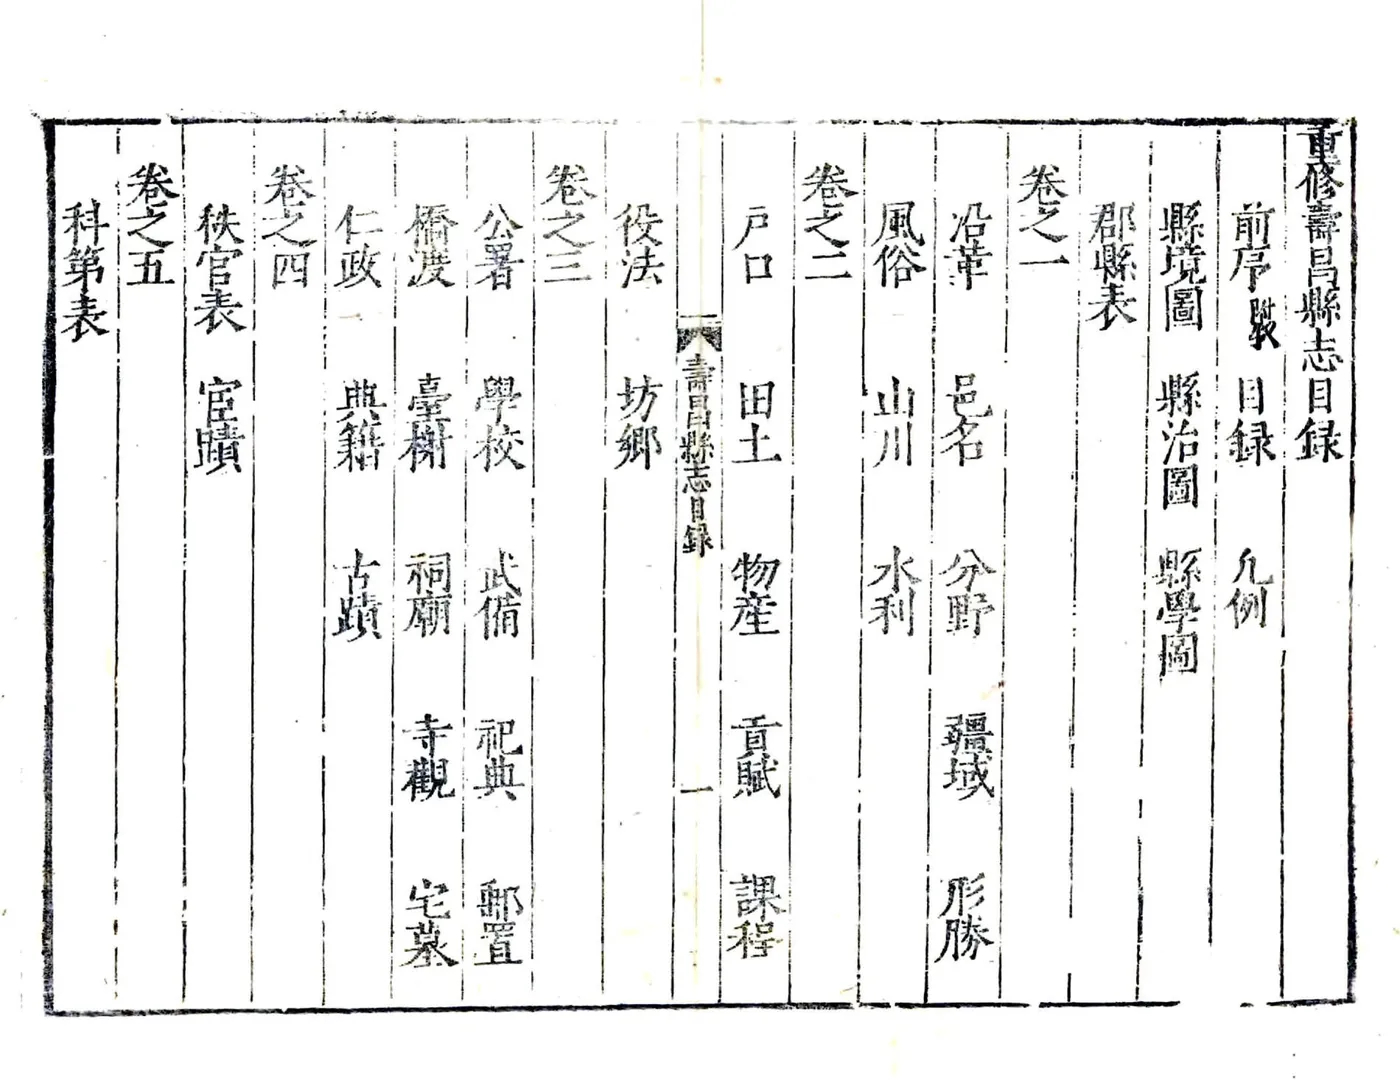 重修壽昌縣志目録
前序附跋 目録 凡例
縣境圖 縣治圖 縣學圖
郡縣表
卷之一
沿革 邑名 分野 疆域 形勝
風俗 山川 水利
卷之二
戸口 田土 物産 貢賦 課程
壽昌縣志目録 一
役法 坊鄉
卷之三
公署 學校 武俻 祀典 郵置
橋渡 臺榭 祠廟 寺觀 宅墓
仁政 典籍 古蹟
卷之四
秩官表 宦蹟
卷之五
科第表